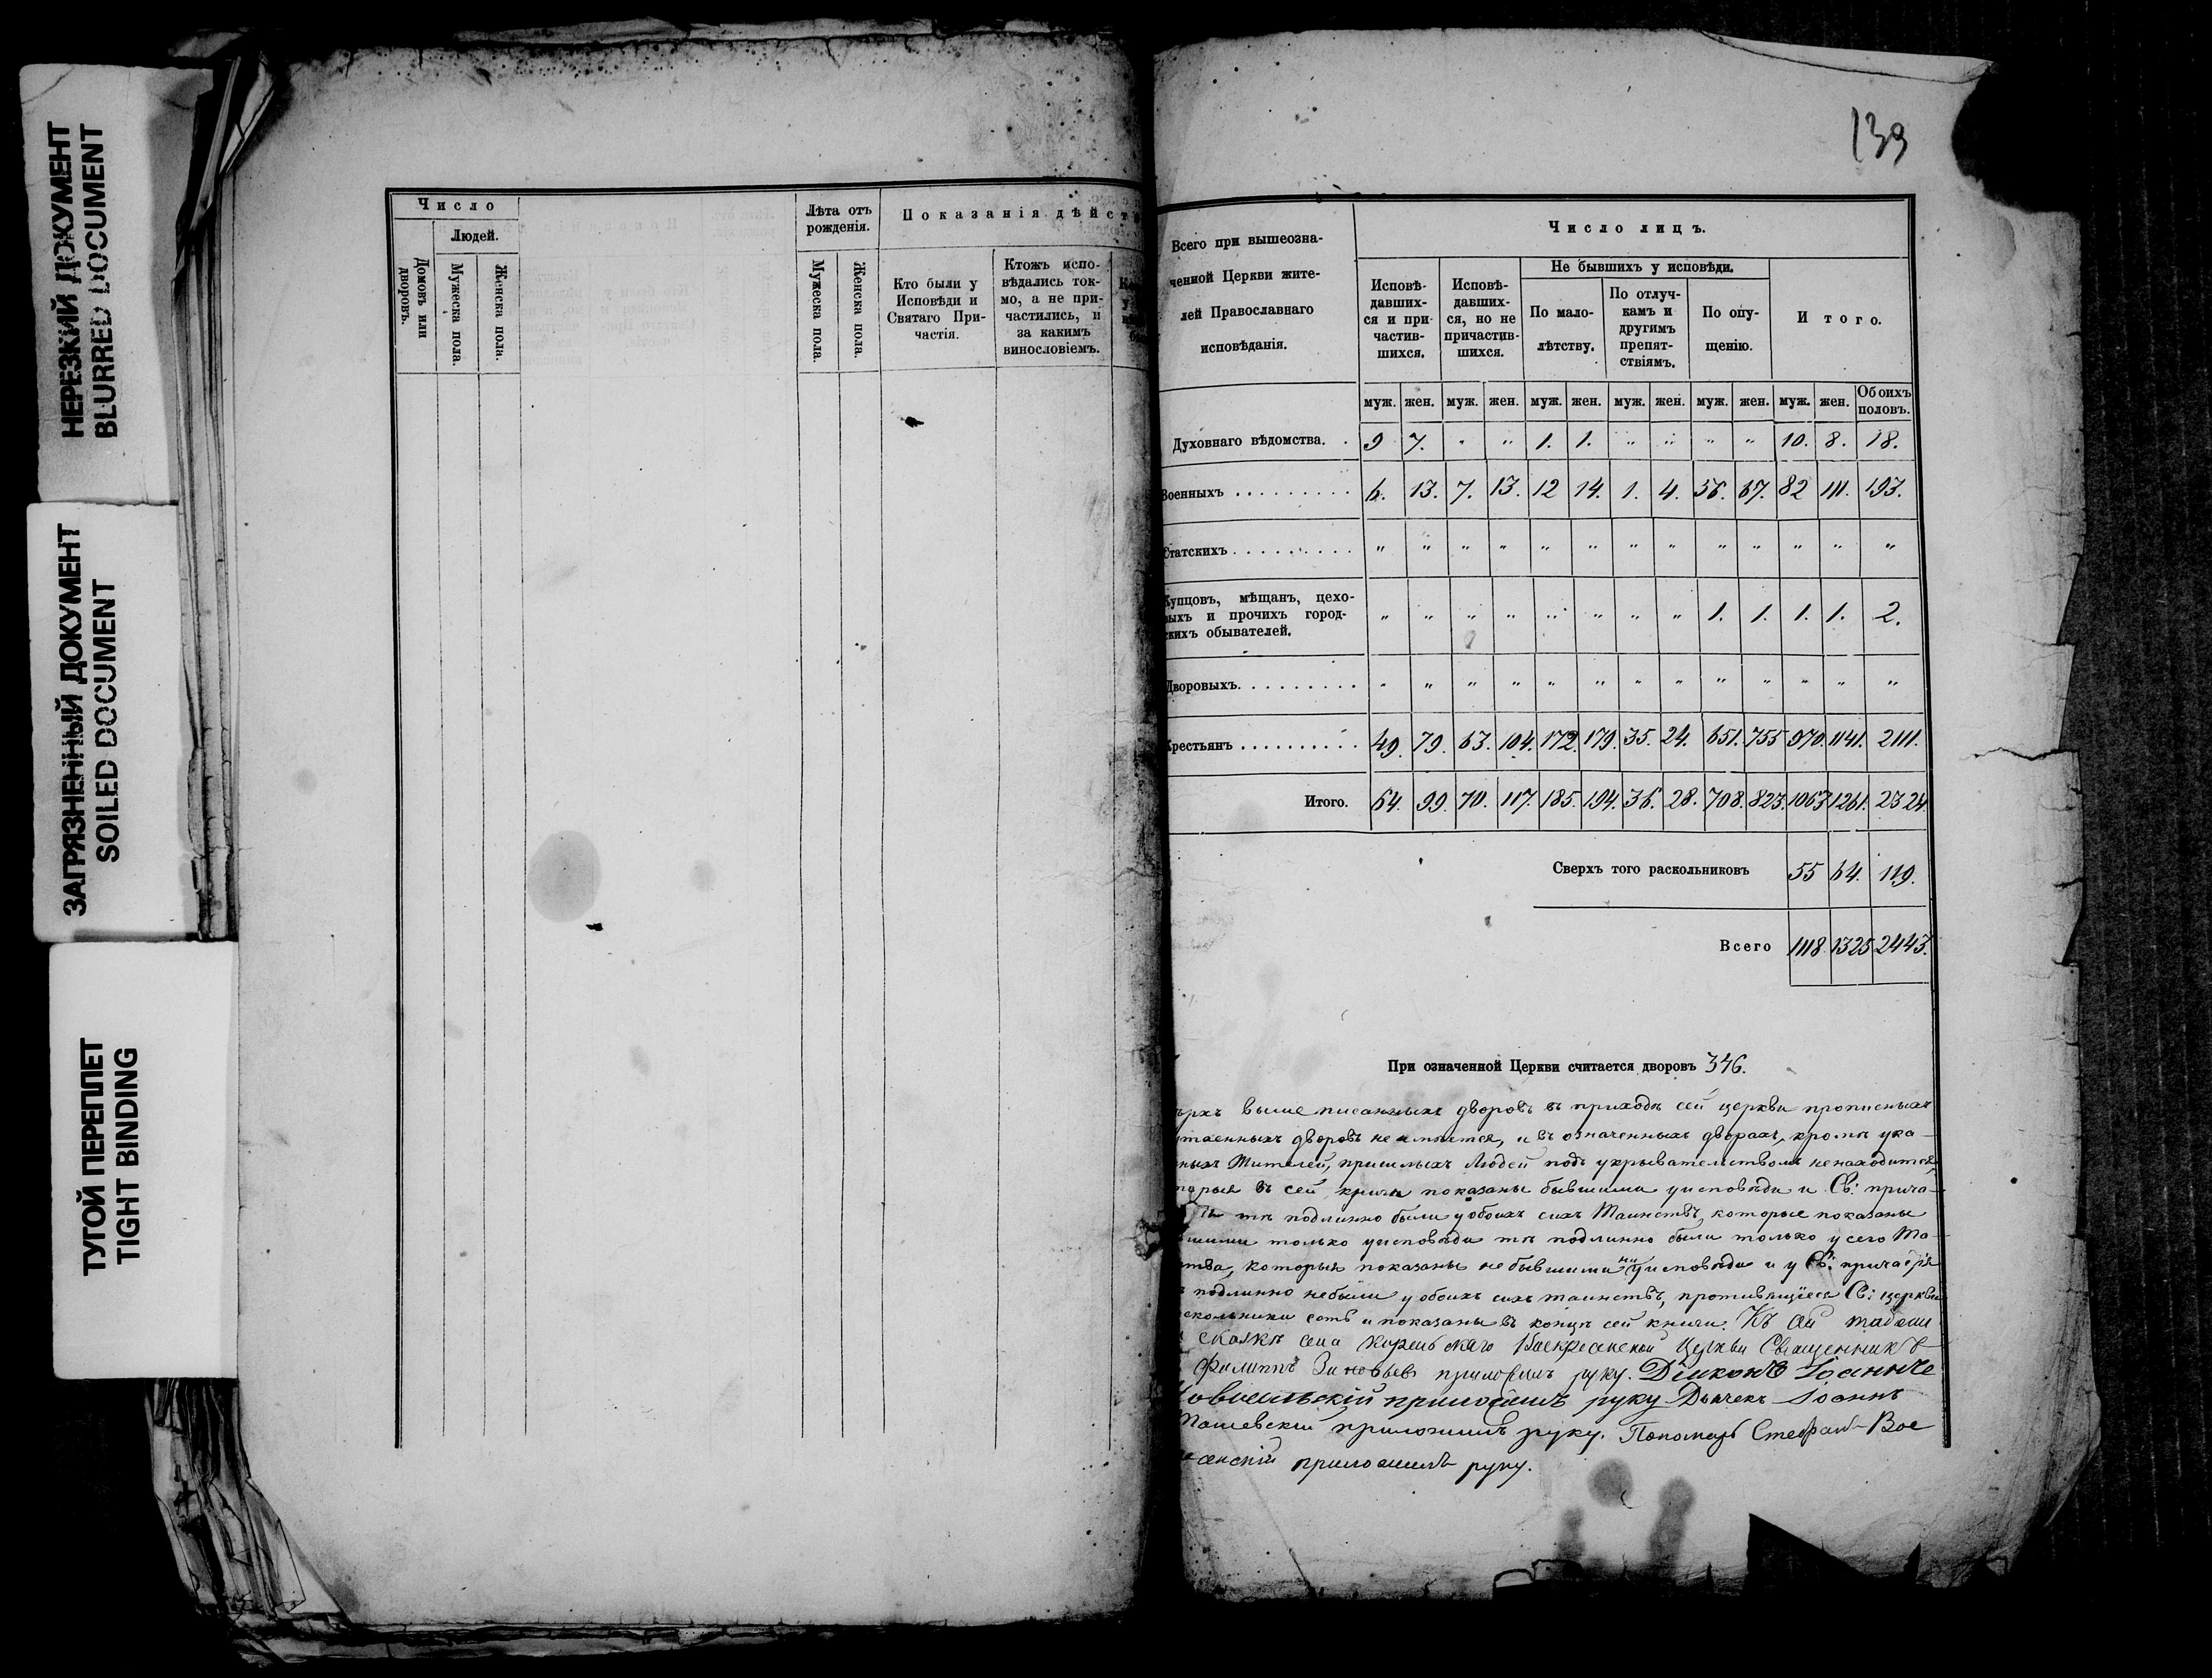 НЕРЕЗКИЙ ДОКУМЕНТ
BLURRED DOCUMENT
ЗАГРЯЗНЕННЫЙ ДОКУМЕНТ
SOILED DOCUMENT
ТУГОЙ ПЕРЕПЛЕТ
TIGHT BINDING
Число
Людей.
Домовъ или
дворовъ.
Мужеска пола.
Женска пола.
Лѣта отъ
рожденія.
Мужеска пола.
Женска пола.
Показанія дѣйст
Кто были у
Исповѣди и
Святаго При-
частія.
Ктожъ испо-
вѣдались ток-
мо, а не при-
частились, и
за какимъ
винословіемъ.
139
Всего при вышеозна-
ченной Церкви жите-
лей Православнаго
исповѣданія.
Число лицъ.
Исповѣ-
давших-
ся и при-
частив-
шихся.
Исповѣ-
давших-
ся, но не
причастив-
шихся.
Не бывшихъ у исповѣди.
По мало-
лѣтству.
По отлуч-
камъ и
другимъ
препят-
ствіямъ.
По опу-
щенію.
Итого.
муж. жен. муж. жен. муж. жен. муж. жен. муж. жен. муж. жен. Обоихъ половъ.
Духовнаго вѣдомства. . 9 7. " " 1. 1. " " " " 10. 8. 18.
Военныхъ . . . . . . . . . 6. 13. 7. 13. 12 14. 1. 4. 56. 67. 82 111. 193.
Статскихъ . . . . . . . . . " " " " " " " " " " " " "
Купцовъ, мѣщанъ, цехо-
выхъ и прочихъ город-
скихъ обывателей. " " " " " " " " 1. 1. 1. 1. 2.
Дворовыхъ. . . . . . . . . " " " " " " " " " " " " "
Крестьянъ . . . . . . . . . . 49. 79. 63. 104. 172. 179. 35. 24. 651. 755 970. 1141. 2111.
Итого. 64. 99. 70. 117. 185. 194. 36. 28. 708. 823. 1063 1261. 2324
Сверхъ того раскольниковъ 55 64. 119.
Всего 1118. 1325 2443.
При означенной Церкви считается дворовъ 346.
выше писанныхъ дворовъ въ приходѣ сей церкви прописныхъ
утаенныхъ дворовъ не имѣется, и въ означенныхъ дворахъ, кромѣ ука-
ныхъ Жителей, пришлыхъ Людей подъ укрывательствомъ не находится,
въ сей книгѣ показаны бывшими у исповѣди и Св: прича-
тѣ подлинно были у обоихъ сихъ Таинствъ, которые показаны
только у исповѣди тѣ подлинно были только у сего Та-
ства, которыя показаны не бывшими ни у исповѣди и у Св: причастія
подлинно небыли у обоихъ сихъ таинствъ, противящіеся Св: церкви
скольники есть и показаны въ концѣ сей книги. Къ сей
села Воскресенской Церкви Священникъ
Филиппъ Зиновьевъ приложилъ руку. Діаконъ Іоаннъ
приложилъ руку Дьячекъ Іоаннъ
приложилъ руку. Пономарь Стефанъ Вос
сенскій приложилъ руку.